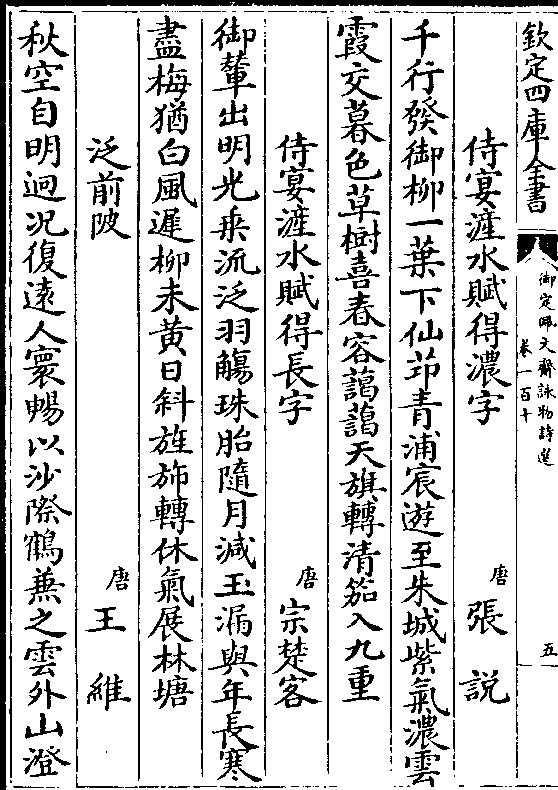 欽定四庫全書
御定佩文齋詠物詩選
卷一百十
五
侍宴滻水賦得濃字
唐 張說
千行發御柳一葉下仙筇青浦宸遊至朱城紫氣濃雲
霞交暮色草樹喜春容藹藹天旗轉清笳入九重
侍宴滻水賦得長字
唐 宗楚客
御輦出明光乗流泛羽觴珠胎隨月減玉漏與年長寒
盡梅猶白風遲柳未黄日斜旌斾轉休氣展林塘
泛前陂
唐 王維
秋空自明迥况復遠人寰暢以沙際鶴兼之雲外山澄